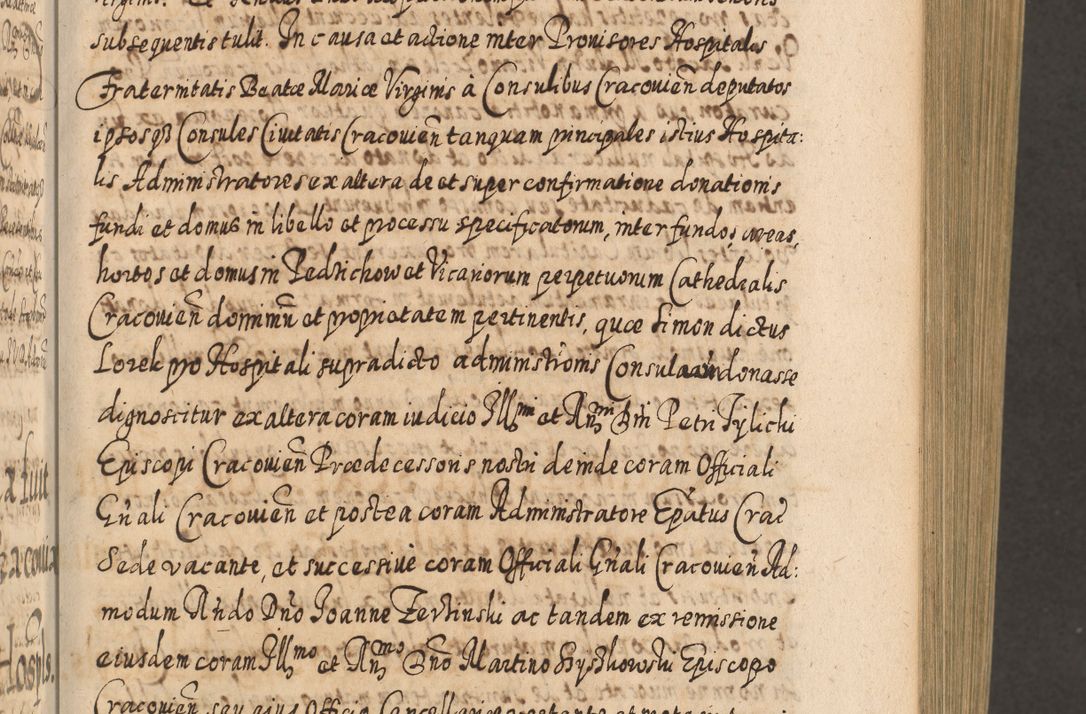 subsequentis tulit. In causa et actione inter Provisores Hospitalis
Fraternitatis Beatæ Mariæ Virginis à Consulibus Cracovień deputatos
ipsosq3 Consules Civitatis Cracovień tanquam principales istius Hospita:
lis Administratores ex altera de et super confirmatione donationis
fundi et domus in libello et processu specificatorum, inter fundos, areas,
hortos et domus in Pedzichow et Vicariorum perpetuorum Cathedralis
Cracovień dominiũ et proprietatem pertinentis, quæ Simon dictus
Lorek pro Hospitali supradicto administronis Consula donasse
dignoscitur ex altera coram iudicio Illmi et Rñmi Dñi Petri Tylichi
Episcopi Cracovień Prædecessoris nostri deinde coram Officiali
Gñali Cracovień et postea coram Administratore Epatus Crac
Sede vacante, et successivè coram Officiali Gñali Cracovień Ad:
modum Rńdo Dño Joanne Zerzinski ac tandem ex remissione
eiusdem coram Illmo et Rñmo Dño Martino Szyszkowski Episcopo